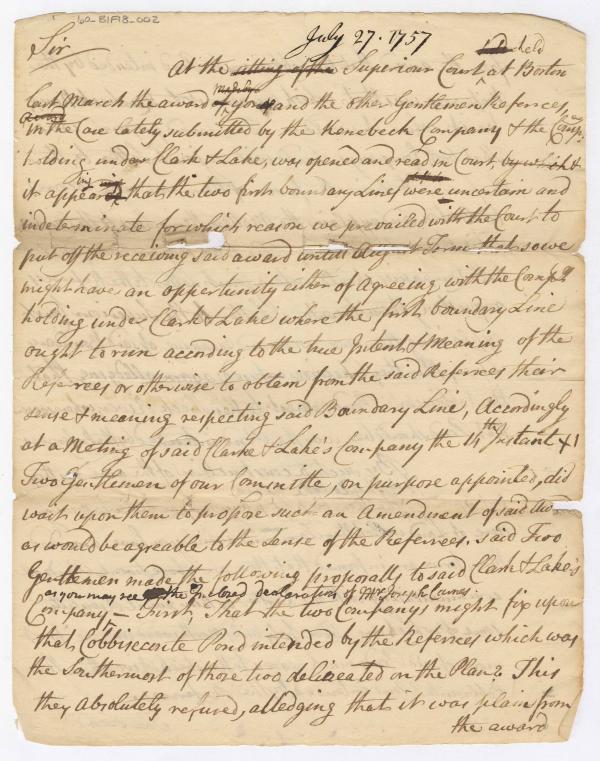 60-B1F18-002
July 27. 1757
Sir
At the sitting of the Superiour Court held at Boston
last March the award made by you and the other Gentlemen Referrees,
in the Case lately submitted by the Kenebeck Company & the Comp.y
holding under Clark & Lake, was opened and read in Court, by which &
it appearing that the two first boundary Lines were uncertain and
indeterminate for which reason we prevailed with the Court to
put off the receiving said award untill August Term that so we
might have an opportunity either of Agreeing with the Comp.y
holding under Clark & Lake where the first boundary Line
ought to run according to the true Intent & Meaning of the
Referrees or otherwise to obtain from the said Referrees their
sense & meaning respecting said Boundary Line, Accordingly
at a Meeting of said Clarke & Lake's Company the 14th Instant +1
Two Gentlemen of our Committe, on purpose appointed, did
wait upon them to propose such an Amendment of said
as would be agreable to the Sense of the Referrees. said Two
Gentlemen made the following proposalls to said Clark & Lake's
as you may see the Inclosed declaration of Mr Joseph
Company – First, That the two Companys might fix upon
that Cobbiseconte Pond intended by the Referrees which was
the Southermost of those two delineated on the Plan 2. This
they absolutely refused, alledging that it was plain from
the award